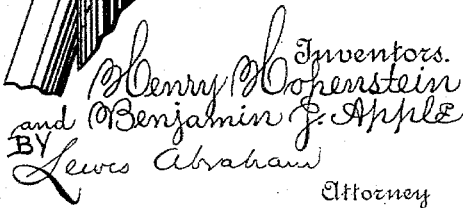 Inventors.
Henry Hopenstein
and Benjamin J. Apple
BY
Lewis Abraham
Attorney